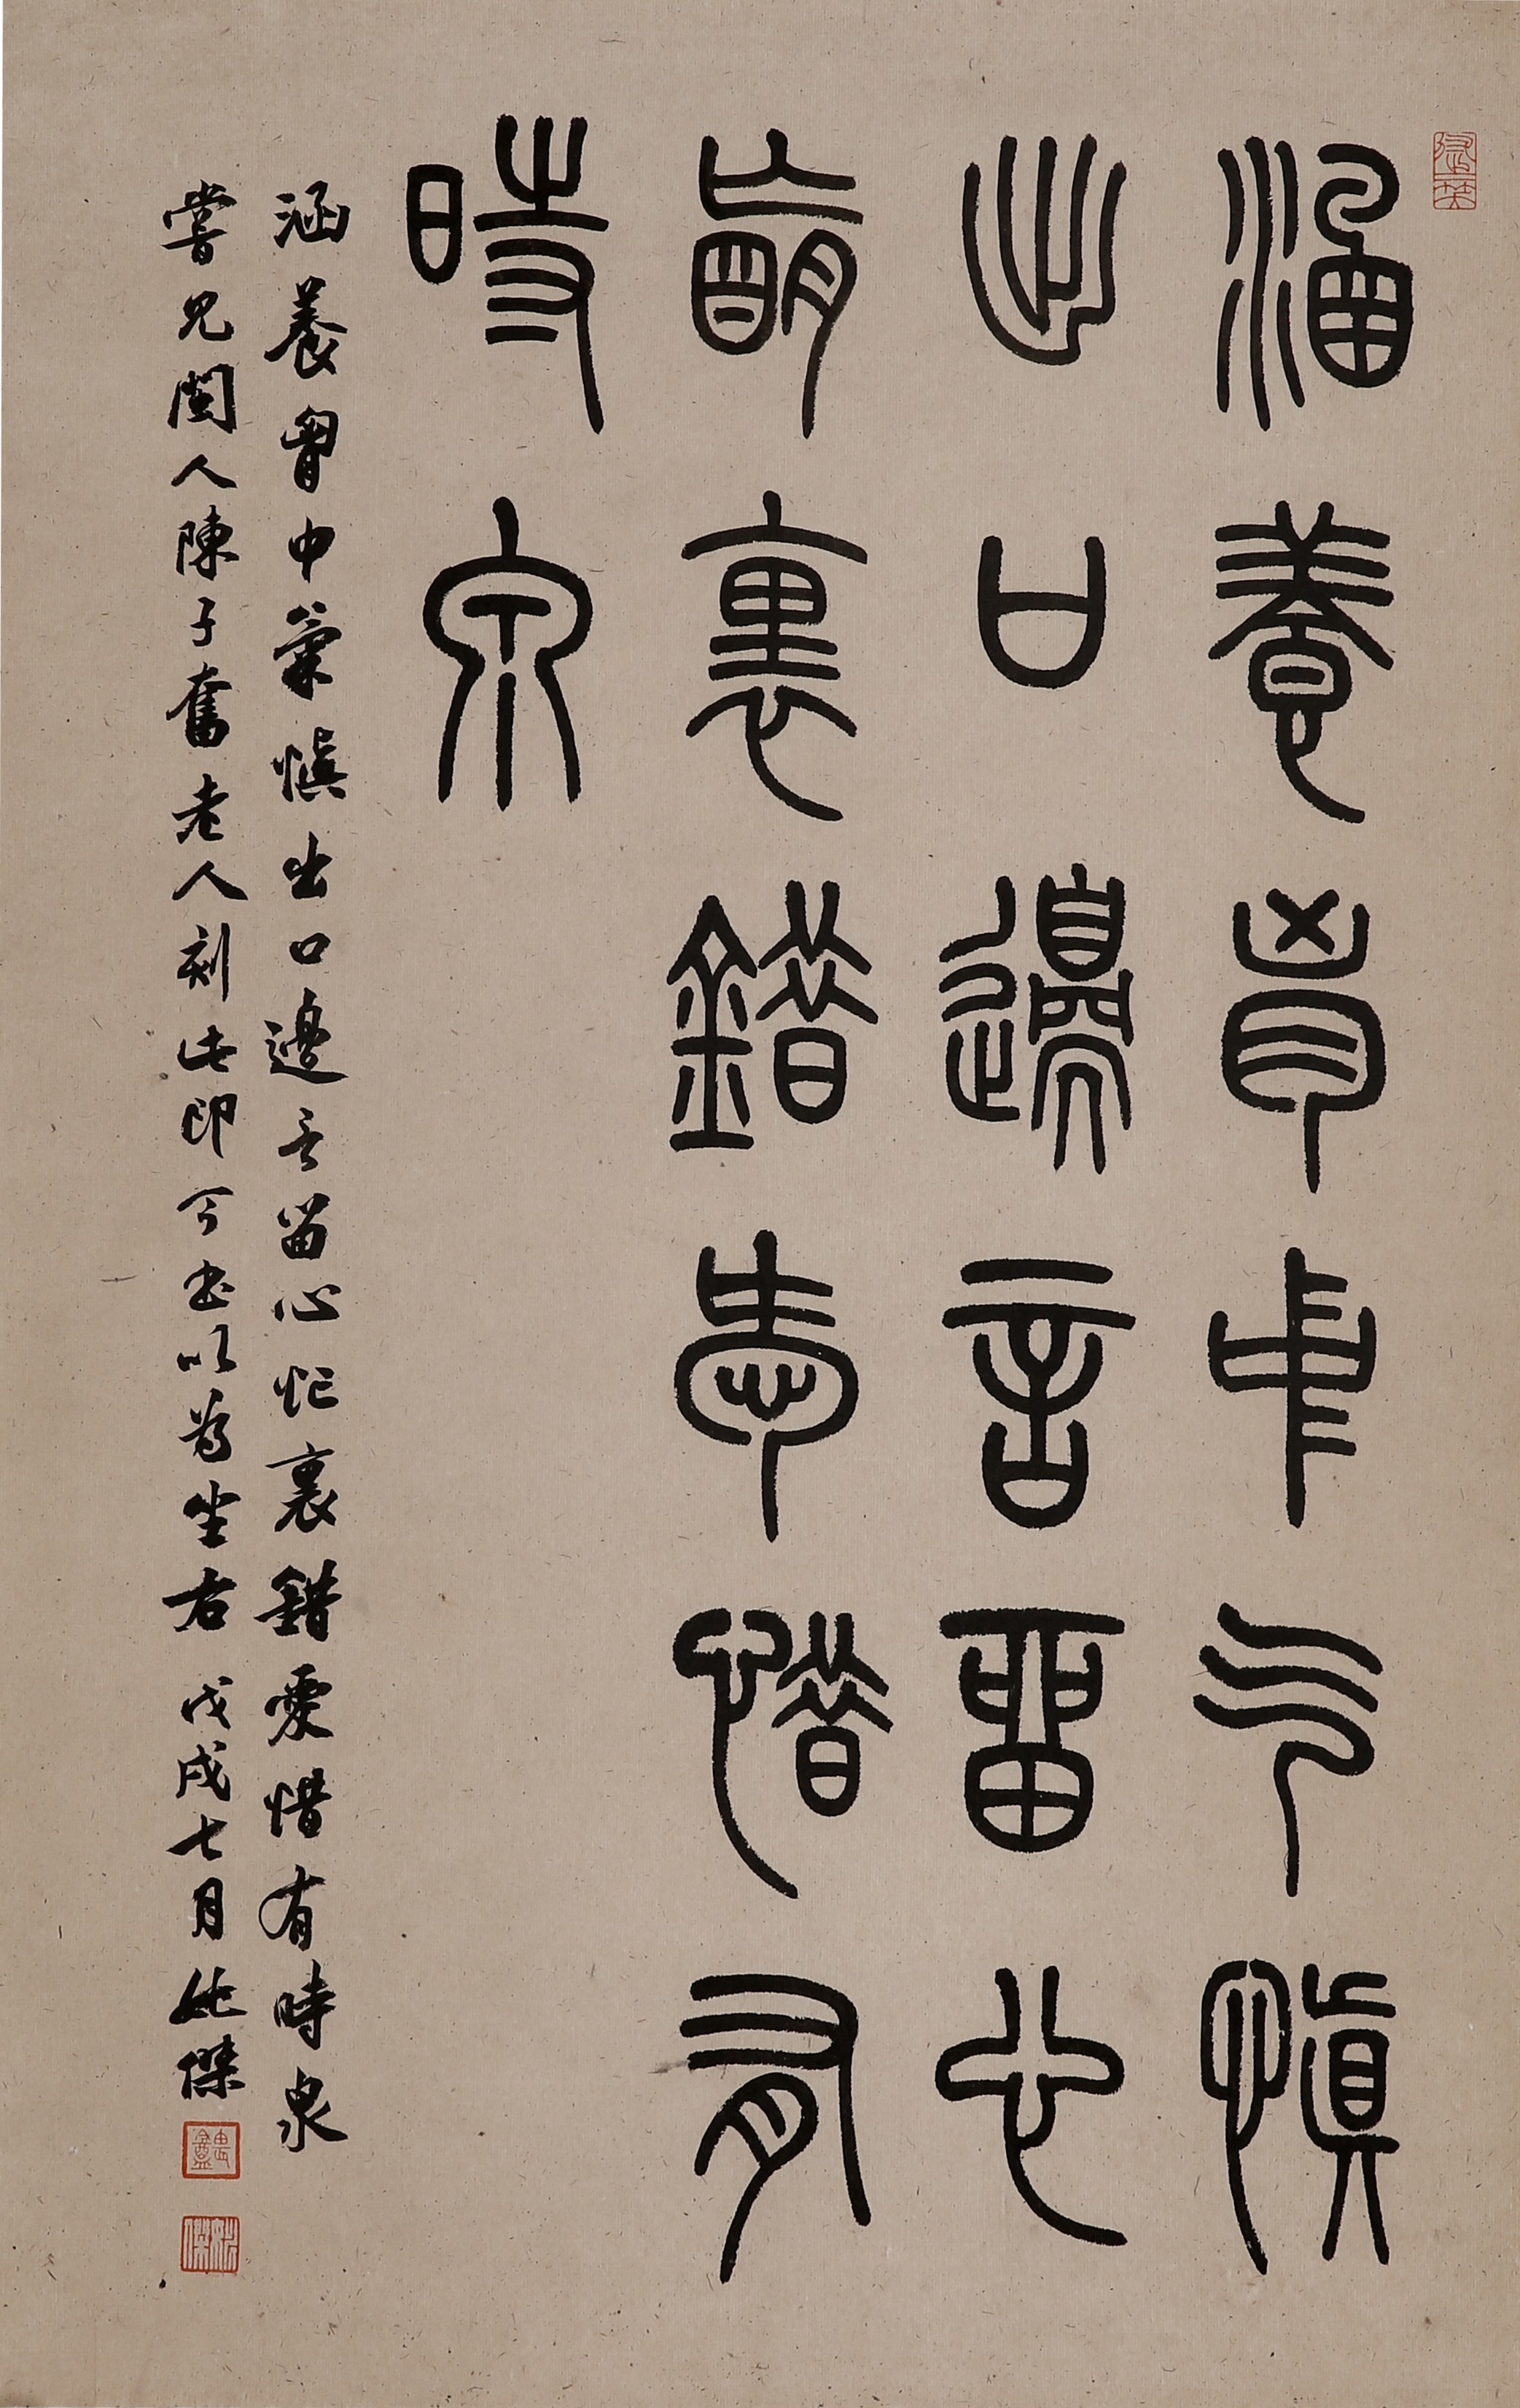 涵養胷中气慎
出口邊言留心
朚裏錯㤅惜有
時泉
涵養胷中氣慎出口邊言留心忙裏錯愛惜有時泉
嘗見閩人陳子奮老人刻此印今書以為坐右戊戌七月傑